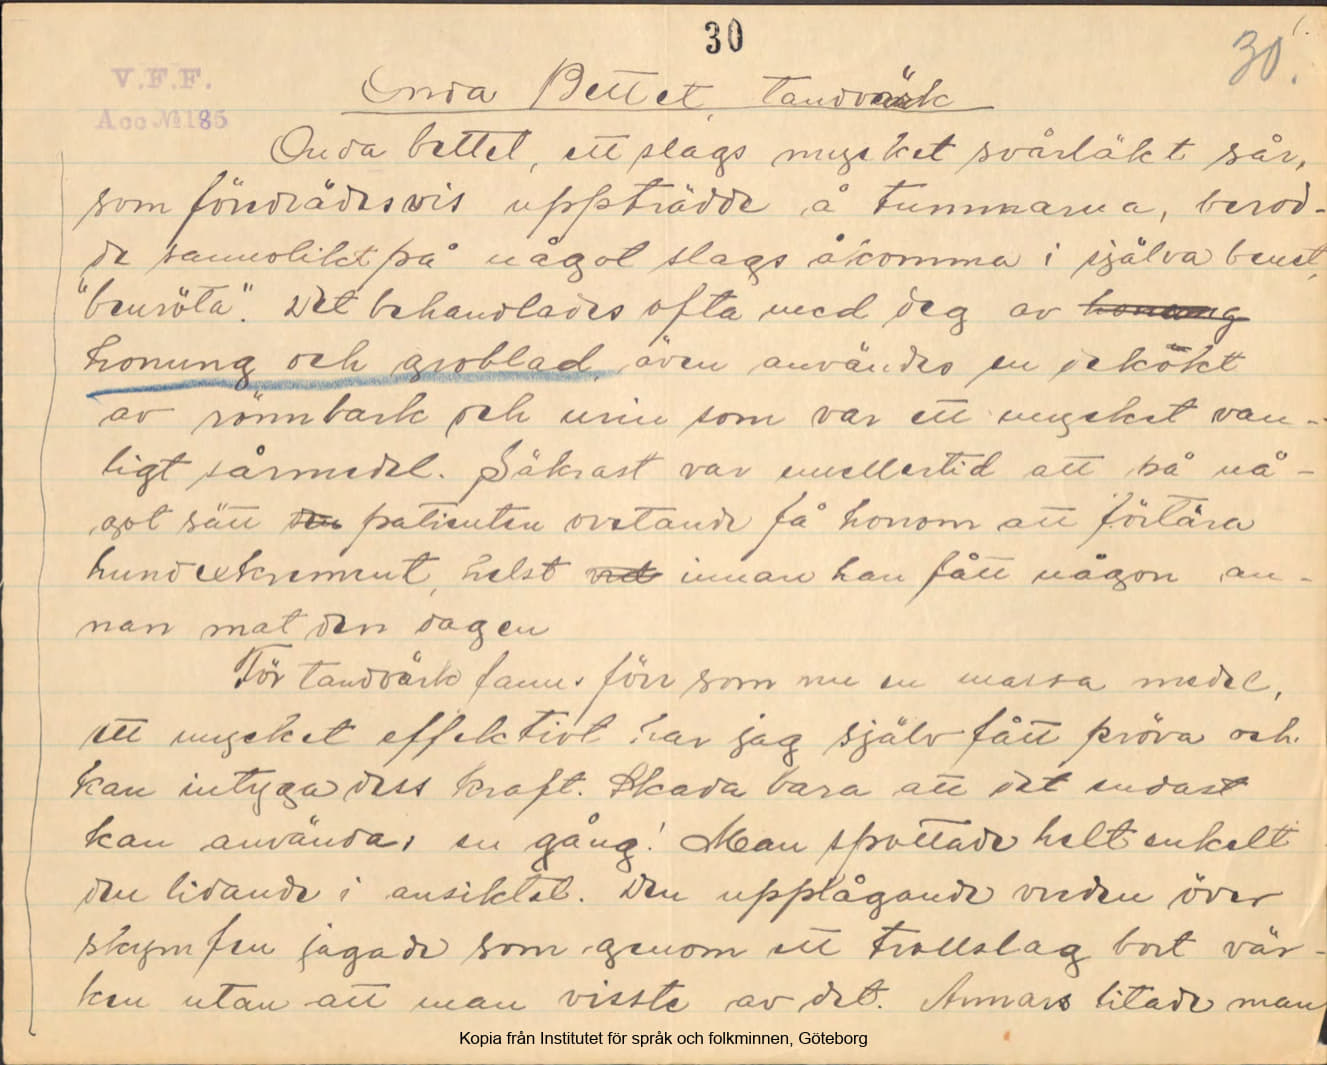 30
30.
V.F.F.
Acc № 185
Onda Bettet, tandvärk
Onda bettet, ett slags mycket svårläkt sår,
som företrädesvis uppträdde å tummarna, berod-
de sannolikt på något slags åkomma i själva benet,
"benröta". Det behandlades ofta med deg av honung
honung och groblad, även användes en dekokt
av rönnbark och urin som var ett mycket van-
ligt sårmedel. Säkrast var emellertid att på nå-
got sätt den patienten ovetande få honom att förtära
hundexkrement, helst vid innan han fått någon an-
nan mat den dagen
För tandvärk fanns förr som nu en massa medel,
ett mycket effektivt har jag själv fått pröva och
kan intyga dess kraft. Skada bara att det endast
kan användas en gång! Man spottade helt enkelt
den lidande i ansiktet. Den upplågande vreden över
skymfen jagade som genom ett trollslag bort vär-
ken utan att man visste av det. Annars litade man
Kopia från Institutet för språk och folkminnen, Göteborg